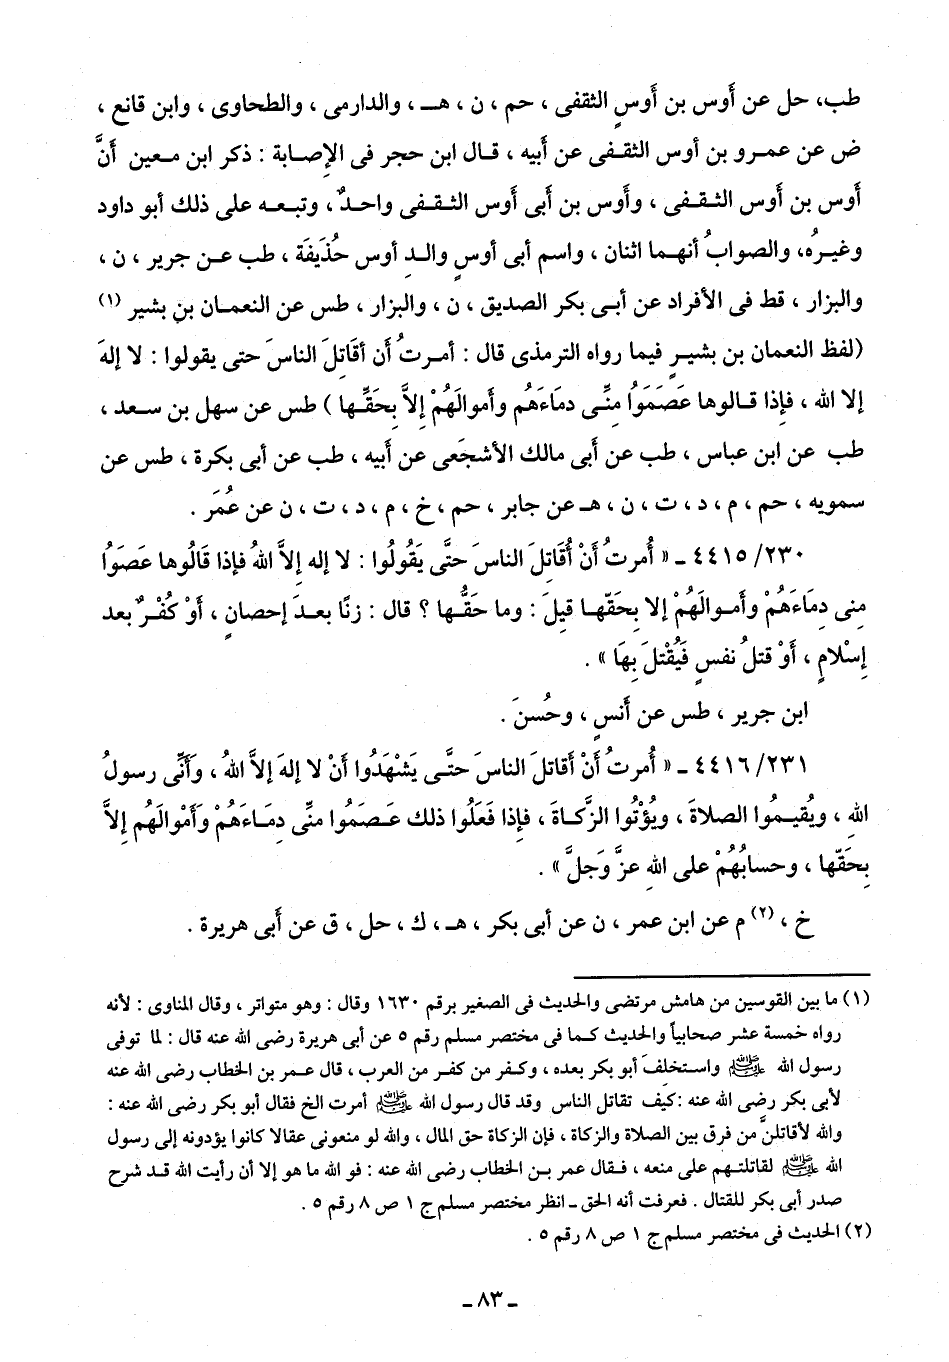 طب، حل عن أَوس بن أَوسٍ الثقفى ، حم ، ن ، هـ ، والدارمى ، والطحاوى ، وابن قانع ،
ض عن عمرو بن أوس الثقـفى عن أَبيه ، قـال ابن حجر فى الإصابة : ذكر ابن مـعين أَنَّ
أَوس بن أَوس الثـقـفى ، وأَوس بن أَبى أَوس الثـقـفى واحـدٌ ، وتبـعـه على ذلك أبو داود
وغيـرُه، والصوابُ أنهـما اثنان ، واسم أبى أوسٍ والـدِ أوس حُذَيفَة ، طب عـن جرير ، ن ،
والبزار ، قط فى الأفراد عن أبـى بكر الصديق ، ن ، والبزار ، طس عن النعمـان بنِ بشير (١)
(لفظ النعمان بن بشيـرٍ فيما رواه الترمذى قال : أمـرتُ أن أقاتلَ الناسَ حتى يقولوا : لا إلهَ
إلا الله ، فإِذا قـالوها عَصَمَوُا منِّـى دمَاءَهُم وأموالَهُمْ إلاَّ بِحَقِّـها ) طس عن سهل بن سـعد ،
طب عن ابن عباس ، طب عن أَبى مالك الأشجَعى عن أَبيه ، طب عن أبى بكرة ، طس عن
سمويه ، حم ، م ، د ، ت ، ن ، هـ عن جابر ، حم ، خ ، م ، د ، ت ، ن عن عُمَر .
٤٤١٥/٢٣٠ ـ « أُمرتُ أنْ أُقَاتلَ الناسَ حتَّى يَقُولُوا : لا إله إلاَّ اللهُ فإذا قَالُوها عَصَوُا
مِنى دِمَاءَهُمْ وأمـوالَهُمْ إلا بِحَقّـها قيلَ : وما حَقُّـها ؟ قال : زنًا بعـدَ إحصانٍ ، أوْ كُفْـرٌ بعد
إِسْلامٍ ، أوْ قتلُ نفسٍ فَيُقْتلَ بِهَا » .
ابن جرير ، طس عن أَنسٍ ، وحُسنَ .
٤٤١٦/٢٣١ ـ « أُمرتُ أنْ أقاتلَ الناسَ حتَّـى يَشْهَدُوا أنْ لا إلهَ إلاَّ اللهُ ، وَأنِّى رسولُ
اللهِ ، ويُقيـمُوا الصلاةَ ، ويُؤْتُوا الزَّكـاةَ ، فإذا فَعَلُوا ذلك عَـصَمُوا منِّى دِمَـاءَهُمْ وَأَمْوالَهُم إلاَّ
بِحَقّها ، وحسابُهُمْ على اللهِ عزَّ وَجلَّ » .
خ ، (٢) م عن ابن عمر ، ن عن أبى بكر ، هـ ، ك ، حل ، ق عن أَبى هريرة .
(١) ما بين القوسين من هامش مرتضى والحديث فى الصغير برقم ١٦٣٠ وقال : وهو متواتر ، وقال المناوى : لأنه
رواه خمسة عشر صحابياً والحديث كـما فى مختصر مسلم رقم ٥ عن أبى هريرة رضى الله عنه قال : لما توفى
رسول الله ﷺ واستخلفَ أبو بكر بعده ، وكـفر من كفـر من العرب ، قال عمـر بن الخطاب رضى الله عنه
لأبى بكر رضى الله عنه :كيف تقاتل الناس وقد قال رسول الله ﷺ أمرت الخ فقال أبو بكر رضى الله عنه :
والله لأقاتلنَّ من فرق بين الصلاة والزكاة ، فإن الزكاة حق المال ، والله لو منعونى عقالا كانوا يؤدونه إلى رسول
الله ﷺ لقاتلتـهم على منعه ، فـقال عمر بـن الخطاب رضى الله عنه : فو الله ما هو إلا أن رأيت الله قـد شرح
صدر أبى بكر للقتال . فعرفت أنه الحق ـ انظر مختصر مسلم ج ١ ص ٨ رقم ٥ .
(٢) الحديث فى مختصر مسلم ج ١ ص ٨ رقم ٥ .
ـ ٨٣ ـ